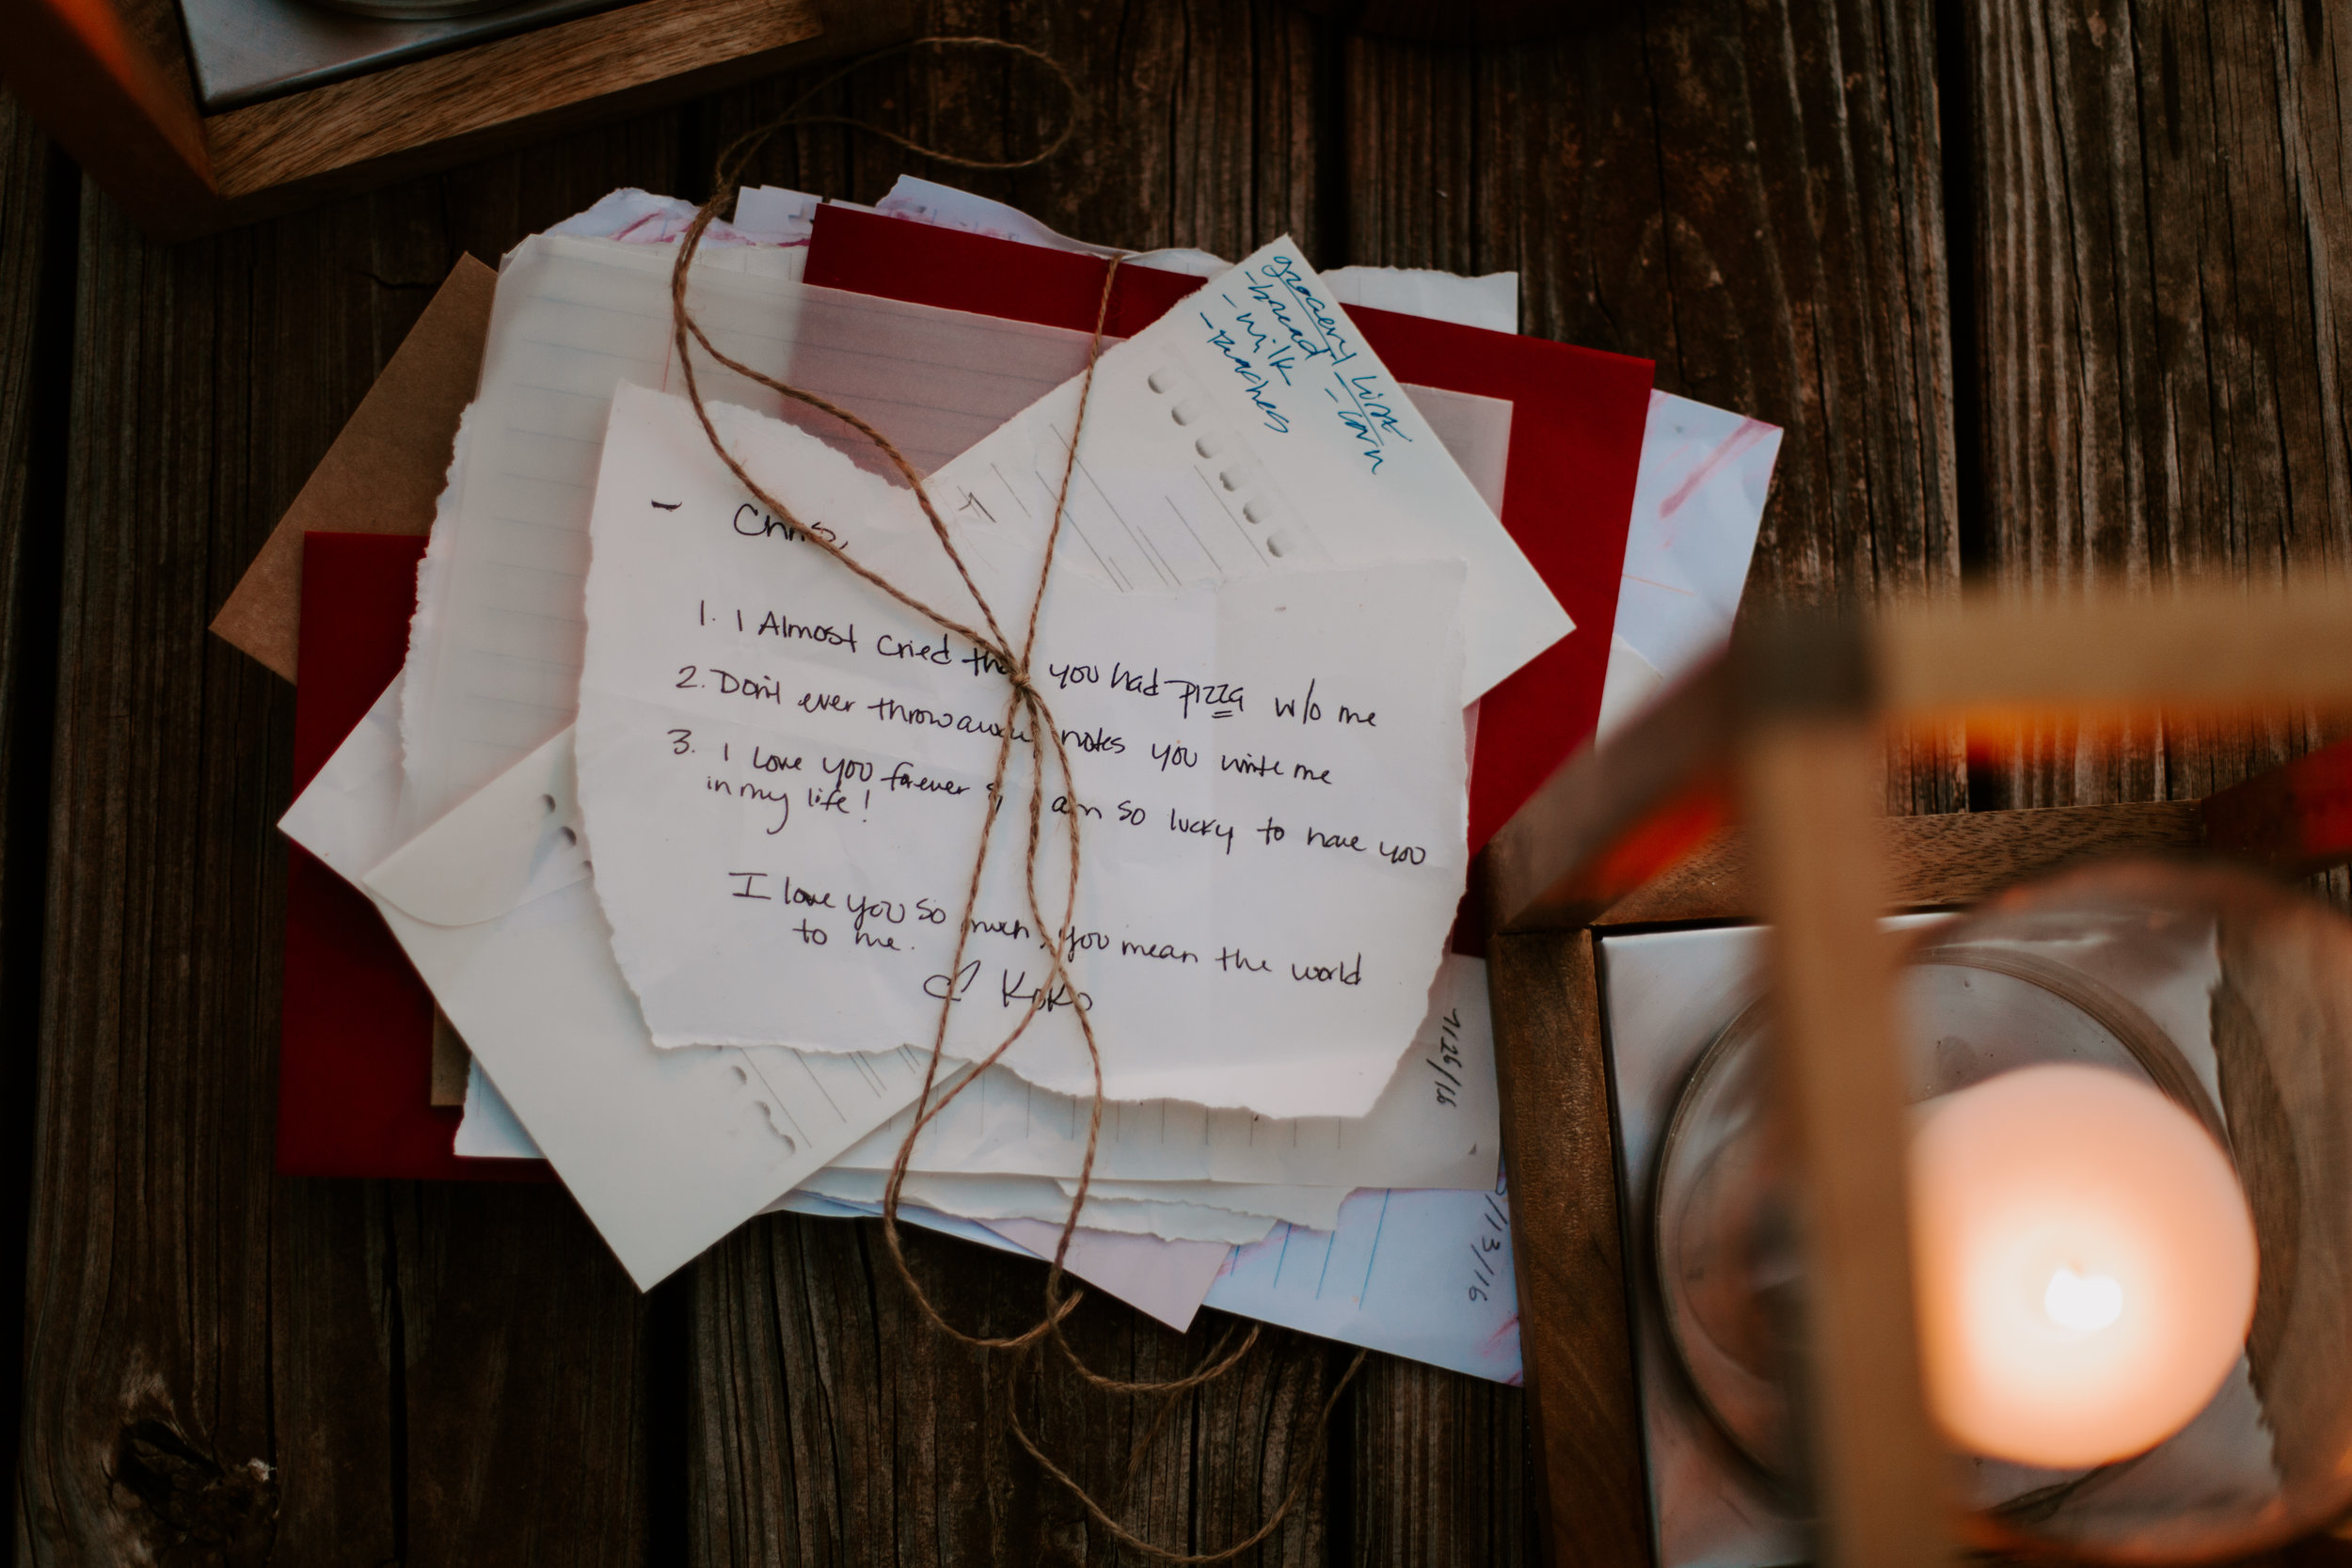 grocery list
- bread - corn
- milk
- peaches
- Chris,
1. I Almost cried that you had pizza w/o me
2. Don't ever throw away notes you write me
3. I love you forever & I am so lucky to have you
in my life!
I love you so much, you mean the world
to me.
Koko
7/25/16
/13/16